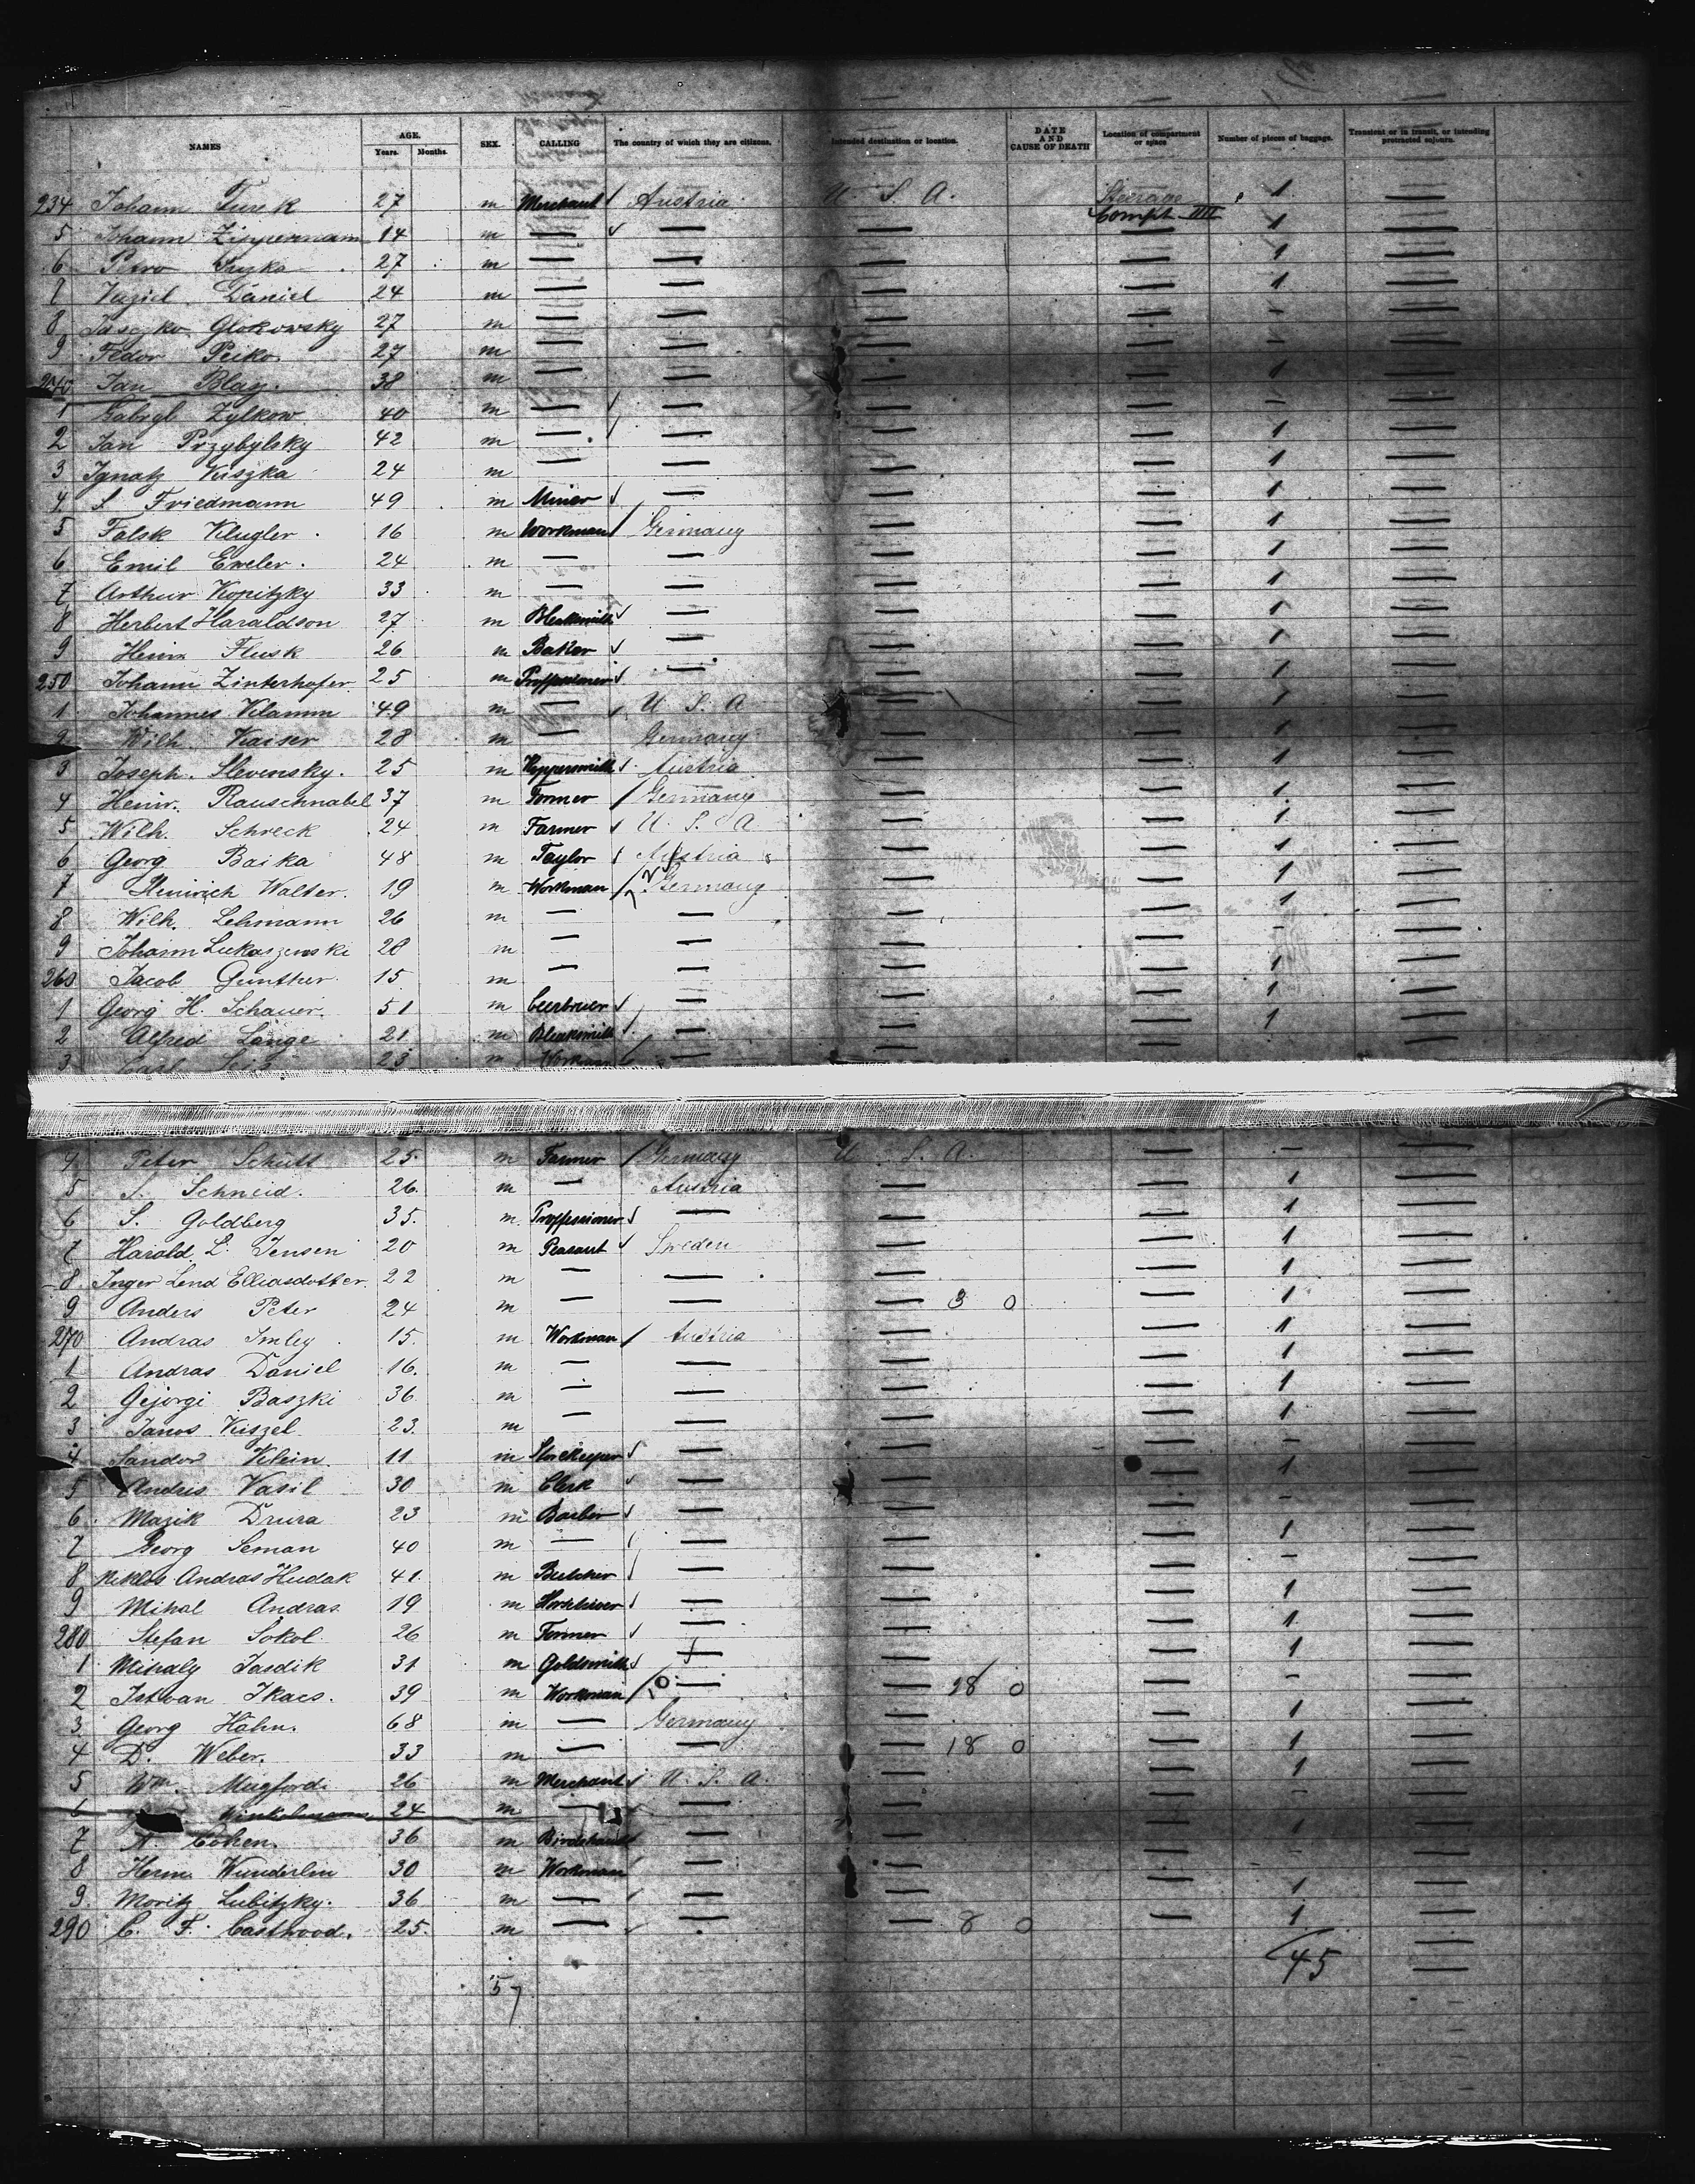 NAMES AGE. Years. Months. SEX. CALLING The country of which they are citizens. Intended destination or location. DATE AND CAUSE OF DEATH Location of compartment or space Number of pieces of baggage. Transient or in transit, or intending protracted sojourn.
234 Johann Turek 27 m Merchant Austria U. S. A. Steerage Compt. IIII 1 —
5 Johann 14 m — — — — 1 —
6 Petro 27 m — — — — 1 —
7 Daniel 24 m — — — — 1 —
8 Jasczko Glokowsky 27 m — — — — - —
9 Fedor Peiko 27 m — — — — - —
240 Jan Blaz. 38 m — — — — 1 —
1 Gabryl Zylkow 40 m — — — — - —
2 Jan Przybylsky 42 m — — — — 1 —
3 Ignatz Kiszka 24 m — — — — 1 —
4 S. Friedmann 49 m Miner — — — 1 —
5 Falsk Klugler 16 m Workman Germany — — 1 —
6 Emil Eweler. 24 m — — — — 1 —
7 Arthur Kopitzky 33 m — — — — 1 —
8 Herbert Haraldson 27 m Bleaksmith — — — 1 —
9 Heinr. Flusk 26 m Baker — — — 1 —
250 Johann Zinterhofer 25 m Proffessioner — — — 1 —
1 Johannes Klamm 49 m — U. S. A — — 1 —
2 Wilh. Kaiser 28 m — Germany — — 1 —
3 Joseph. Slevensky. 25 m Koppersmith Austria — — 1 —
4 Heinr. Rauschnabel 37 m Former Germany — — 1 —
5 Wilh. Schreck 24 m Farmer U. S. A — — 1 —
6 Georg Baika 48 m Taylor Austria — — 1 —
7 Heinrich Walter. 19 m Workman Germany — — 1 —
8 Wilh. Lehmann 26 m — — — — 1 —
9 Johann Lukaszewski 28 m — — — — - —
260 Jacob Günther 15 m — — — — 1 —
1 Georg H. Schauer. 51 m — — — 1 —
2 Alfred Lange 21 m Bleaksmith — — — 1 —
3 Carl 23 m Workman —
4 Peter Schütt 25. m Farmer Germany U. S. A. — - —
5 S. Schneid. 26. m — Austria — — 1 —
6 S. Goldberg 35. m Proffessioner — — — 1 —
7 Harald L. Jensen 20 m Peasant Sweden — — 1 —
8 Inger Lend Elliasdotter. 22 m — — — — 1 —
9 Anders Peter 24 m — — — 3 0 — 1 —
270 Andras Imley 15. m Workman Austria — — 1 —
1 Andras Daniel 16. m — — — — 1 —
2 Gejorgi Baszki 36 m — — — — 1 —
3 Janos Kiszel 23. m — — — — 1 —
4 Sandor Klein 11 m Storekeeper — — — - —
5 Andris Vasil 30 m Clerk — — — 1 —
6 Mazik Drura 23 m Barbier — — — - —
7 Georg Seman 40 m — — — — 1 —
8 Miklos Andras Hudak 41. m Butcher — — — - —
9 Mihal Andras 19 m — — — 1 —
280 Stefan Sokol 26 m Former — — — 1 —
1 Mihaly Jasdik 31 m Goldsmith — — — 1 —
2 Istvan Ikacs. 39 m Workman — — 28 0 — - —
3 Georg Hahn. 68 m — Germany — — 1 —
4 D. Weber. 33 m — — — 18 0 — 1 —
5 Wm. Mugford. 26 m Merchant U. S. A. — — 1 —
6 Winkelmann 24 m — — — — - —
7 Cohen. 36 m — — — 1 —
8 Herm. Wunderlin 30 m Workman — — — - —
9. Moritz Lubitzky. 36 m — — — — 1 —
290 C. F. Casthood. 25. m — — — 8 0 — 1 —
57
45